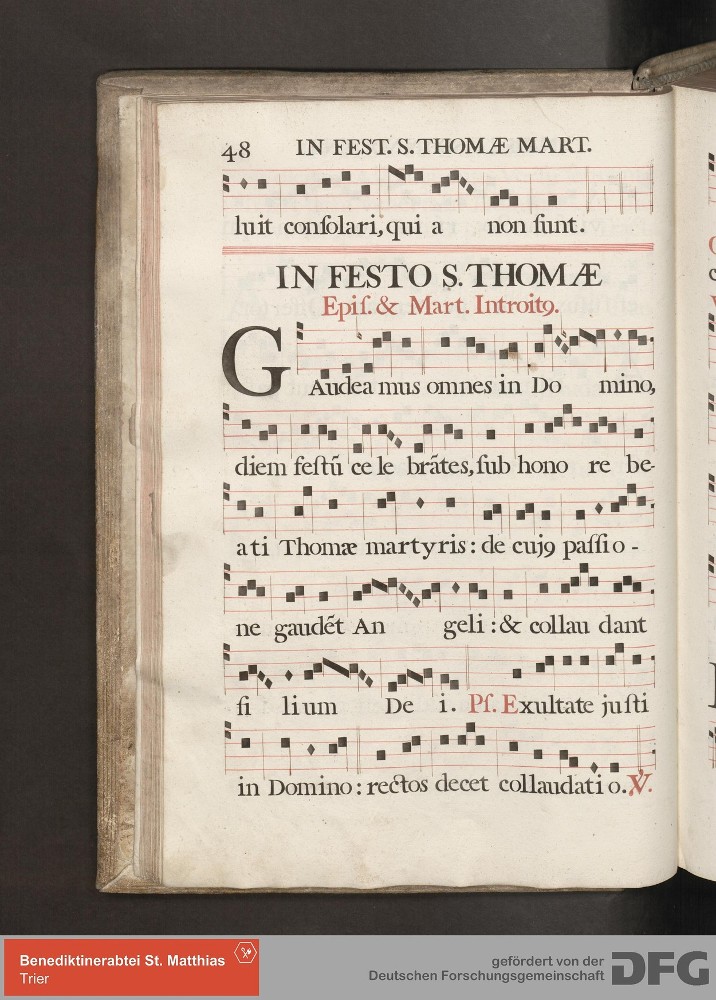 48 IN FEST. S. THOMÆ MART.
luit conſolari, qui a non ſunt.
IN FESTO S. THOMÆ
Epiſ. & Mart. Introitꝰ.
GAudea mus omnes in Do mino,
diem feſtũ ce le brãtes, ſub hono re be-
ati Thomæ martyris : de cujꝰ paſſi o -
ne gaudẽt An geli : & collau dant
fi lium De i. Pſ. Exultate juſti
in Domino : rectos decet collaudati o. V.
Benediktinerabtei St. Matthias
Trier
gefördert von der
Deutschen Forschungsgemeinschaft
DFG